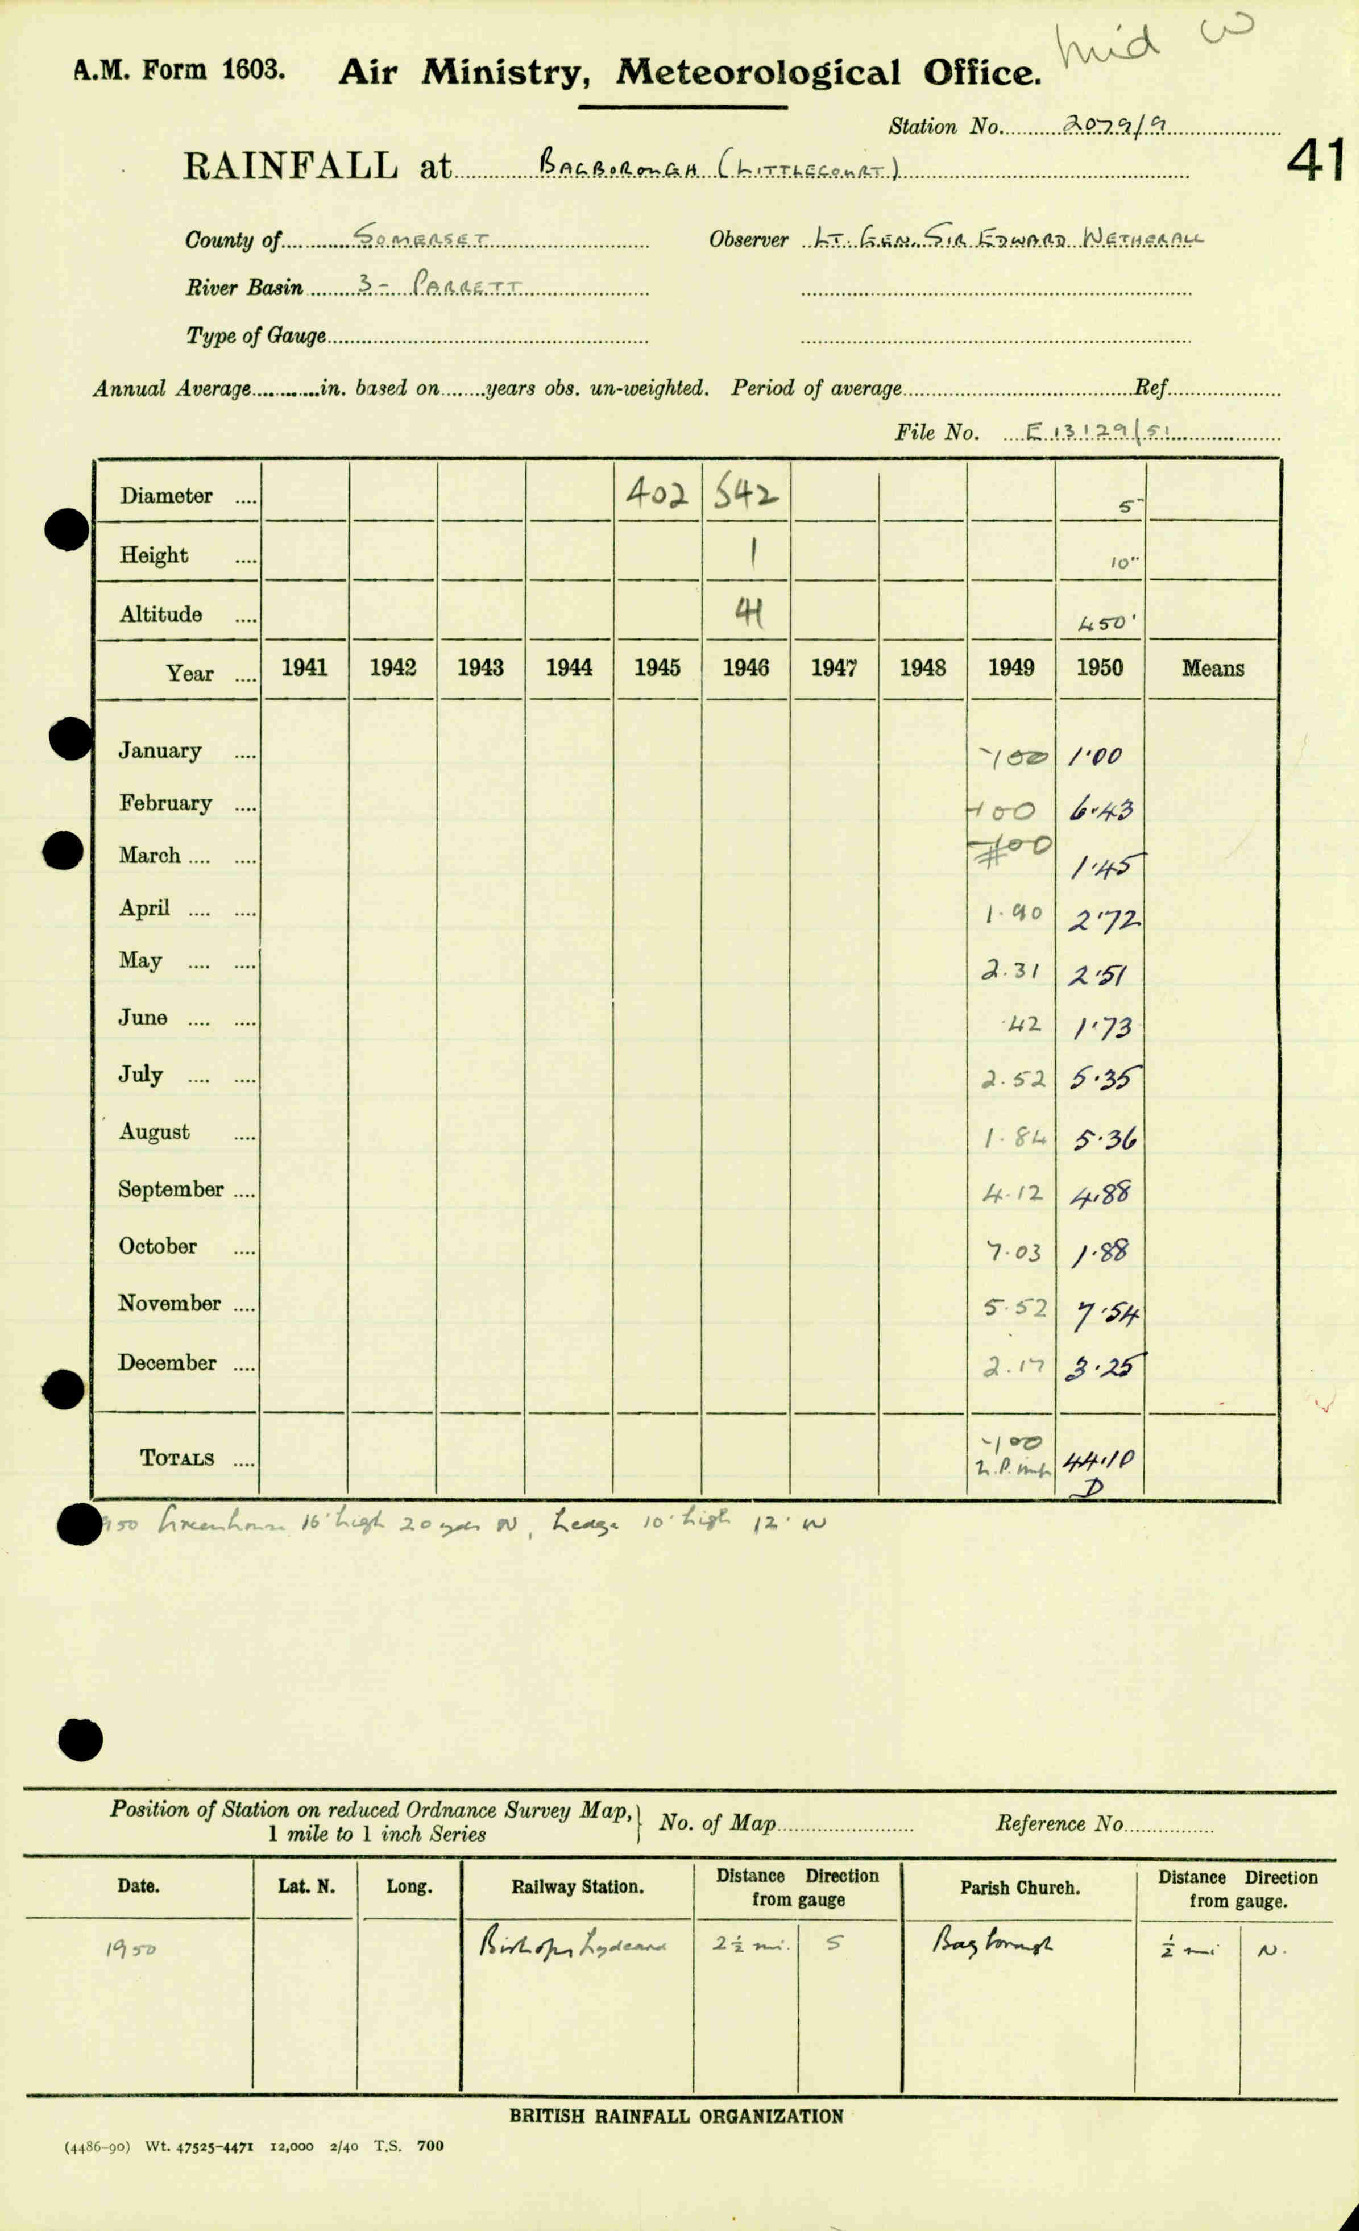 Mid W
A.M. Form 1603. Air Ministry, Meteorological Office.
Station No. 2079/9
41
RAINFALL at BAGBOROUGH (LITTLECOURT)
County of SOMERSET Observer LT. GEN. SIR EDWARD WETHERALL
River Basin 3- PARRETT
Type of Gauge
Annual Average in. based on years obs. un-weighted. Period of average Ref.
File No. E 13129/51
Diameter .... 402 542 5
Height .... 1 10"
Altitude .... 41 450'
Year .... 1941 1942 1943 1944 1945 1946 1947 1948 1949 1950 Means
January .... -100 1·00
February .... -100 6·43
March .... .... -100 1·45
April .... .... 1·90 2·72
May .... .... 2.31 2·51
June .... .... ·42 1·73
July .... .... 2.52 5·35
August .... 1·84 5·36
September .... 4·12 4·88
October .... 7·03 1·88
November .... 5·52 7·54
December .... 2.17 3·25
TOTALS .... -100 44·10
D
950 Greenhouse 16' high 20 yds N, hedge 10' high 12' W
Position of Station on reduced Ordnance Survey Map, 1 mile to 1 inch Series } No. of Map Reference No.
Date. Lat. N. Long. Railway Station. Distance Direction from gauge Parish Church. Distance Direction from gauge.
1950 Bishops Lydeard 2½ mi. S Bagborough ½ mi N.
BRITISH RAINFALL ORGANIZATION
(4486-90) Wt. 47525-4471 12,000 2/40 T.S. 700